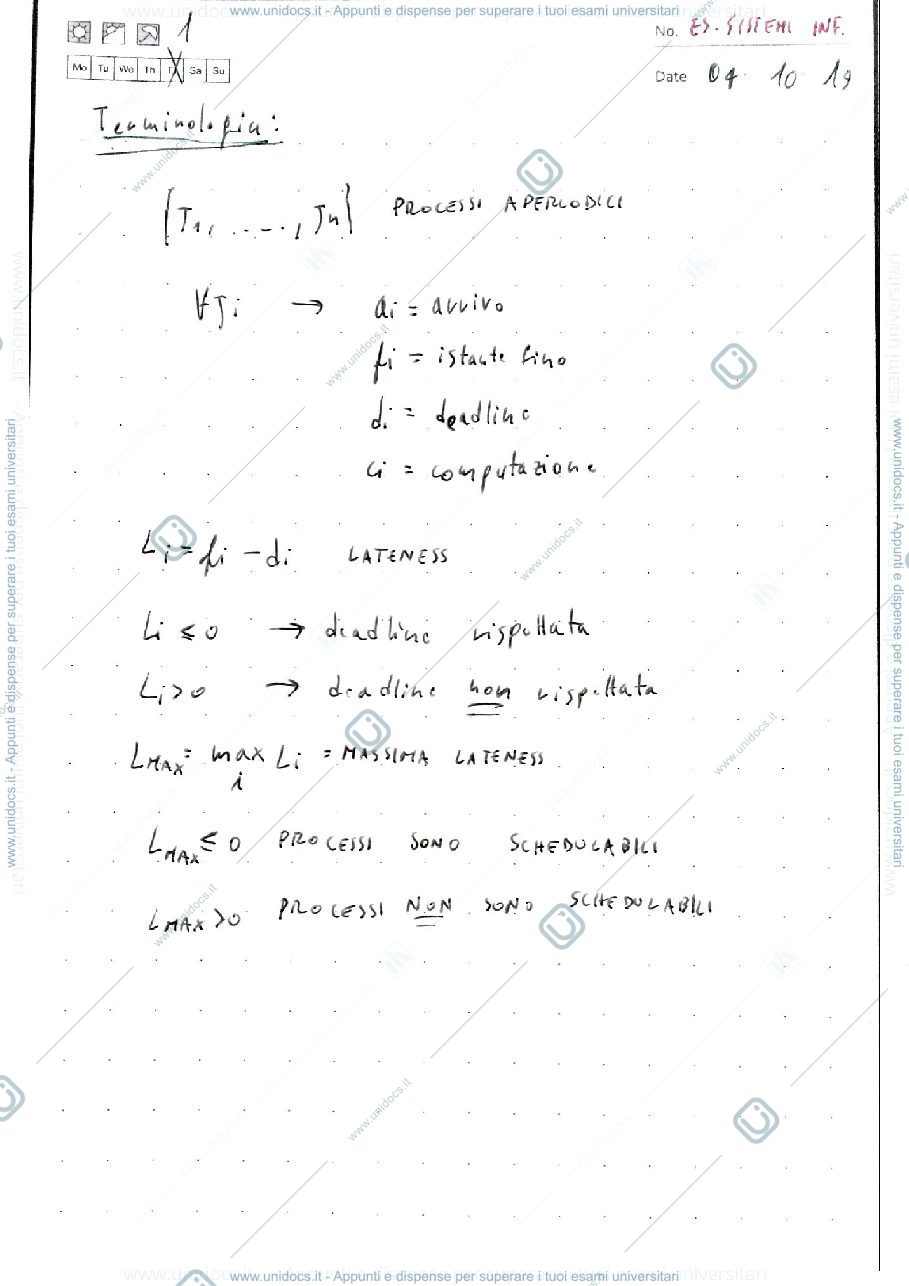 www.unidocs.it - Appunti e dispense per superare i tuoi esami universitari
1
No. ES. SISTEMI INF.
Mo Tu We Th Sa Su
Date 04 10 19
Terminologia:
{J1, ...., Jn} PROCESSI APERIODICI
∀Ji → ai = arrivo
fi = istante fine
di = deadline
ci = computazione
Li = fi - di LATENESS
Li ≤ 0 → deadline rispettata
Li > 0 → deadline non rispettata
LMAX = max Li = MASSIMA LATENESS
i
LMAX ≤ 0 PROCESSI SONO SCHEDULABILI
LMAX > 0 PROCESSI NON SONO SCHEDULABILI
www.unidocs.it - Appunti e dispense per superare i tuoi esami universitari
www.unidocs.it - Appunti e dispense per superare i tuoi esami universitari
www.unidocs.it - Appunti e dispense per superare i tuoi esami universitari
www.unidocs.it
www.unidocs.it
www.unidocs.it
www.unidocs.it
www.unidocs.it
www.unidocs.it